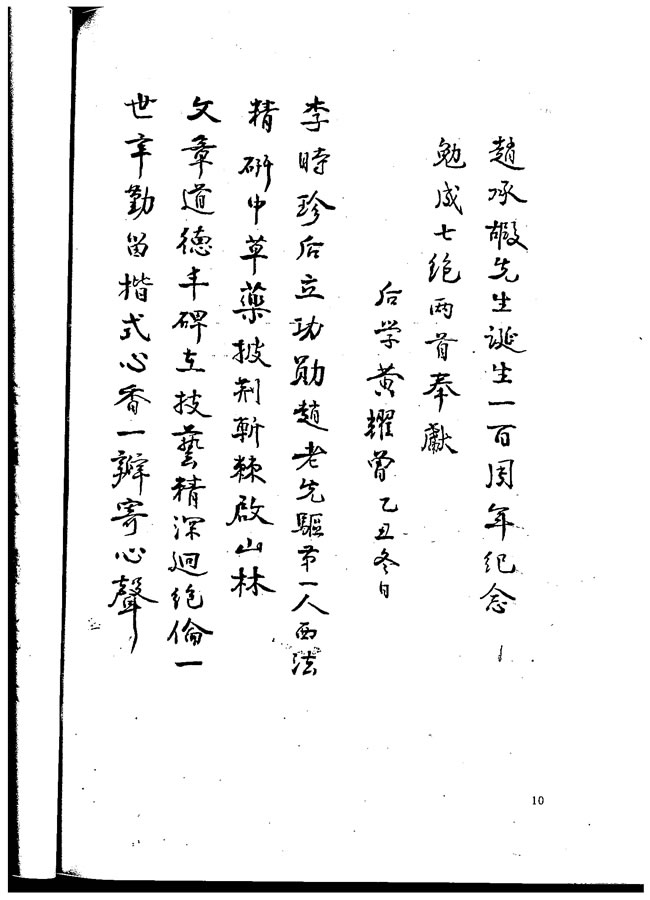 趙承嘏先生诞生一百周年纪念
勉成七绝两首奉獻
后学黄耀曾乙丑冬日
李時珍后立功勋趙老先驅第一人西法
精研中草藥披荆斩棘启山林
文章道德丰碑在技藝精深迥绝倫一
世辛勤留楷式心香一瓣寄心聲
10